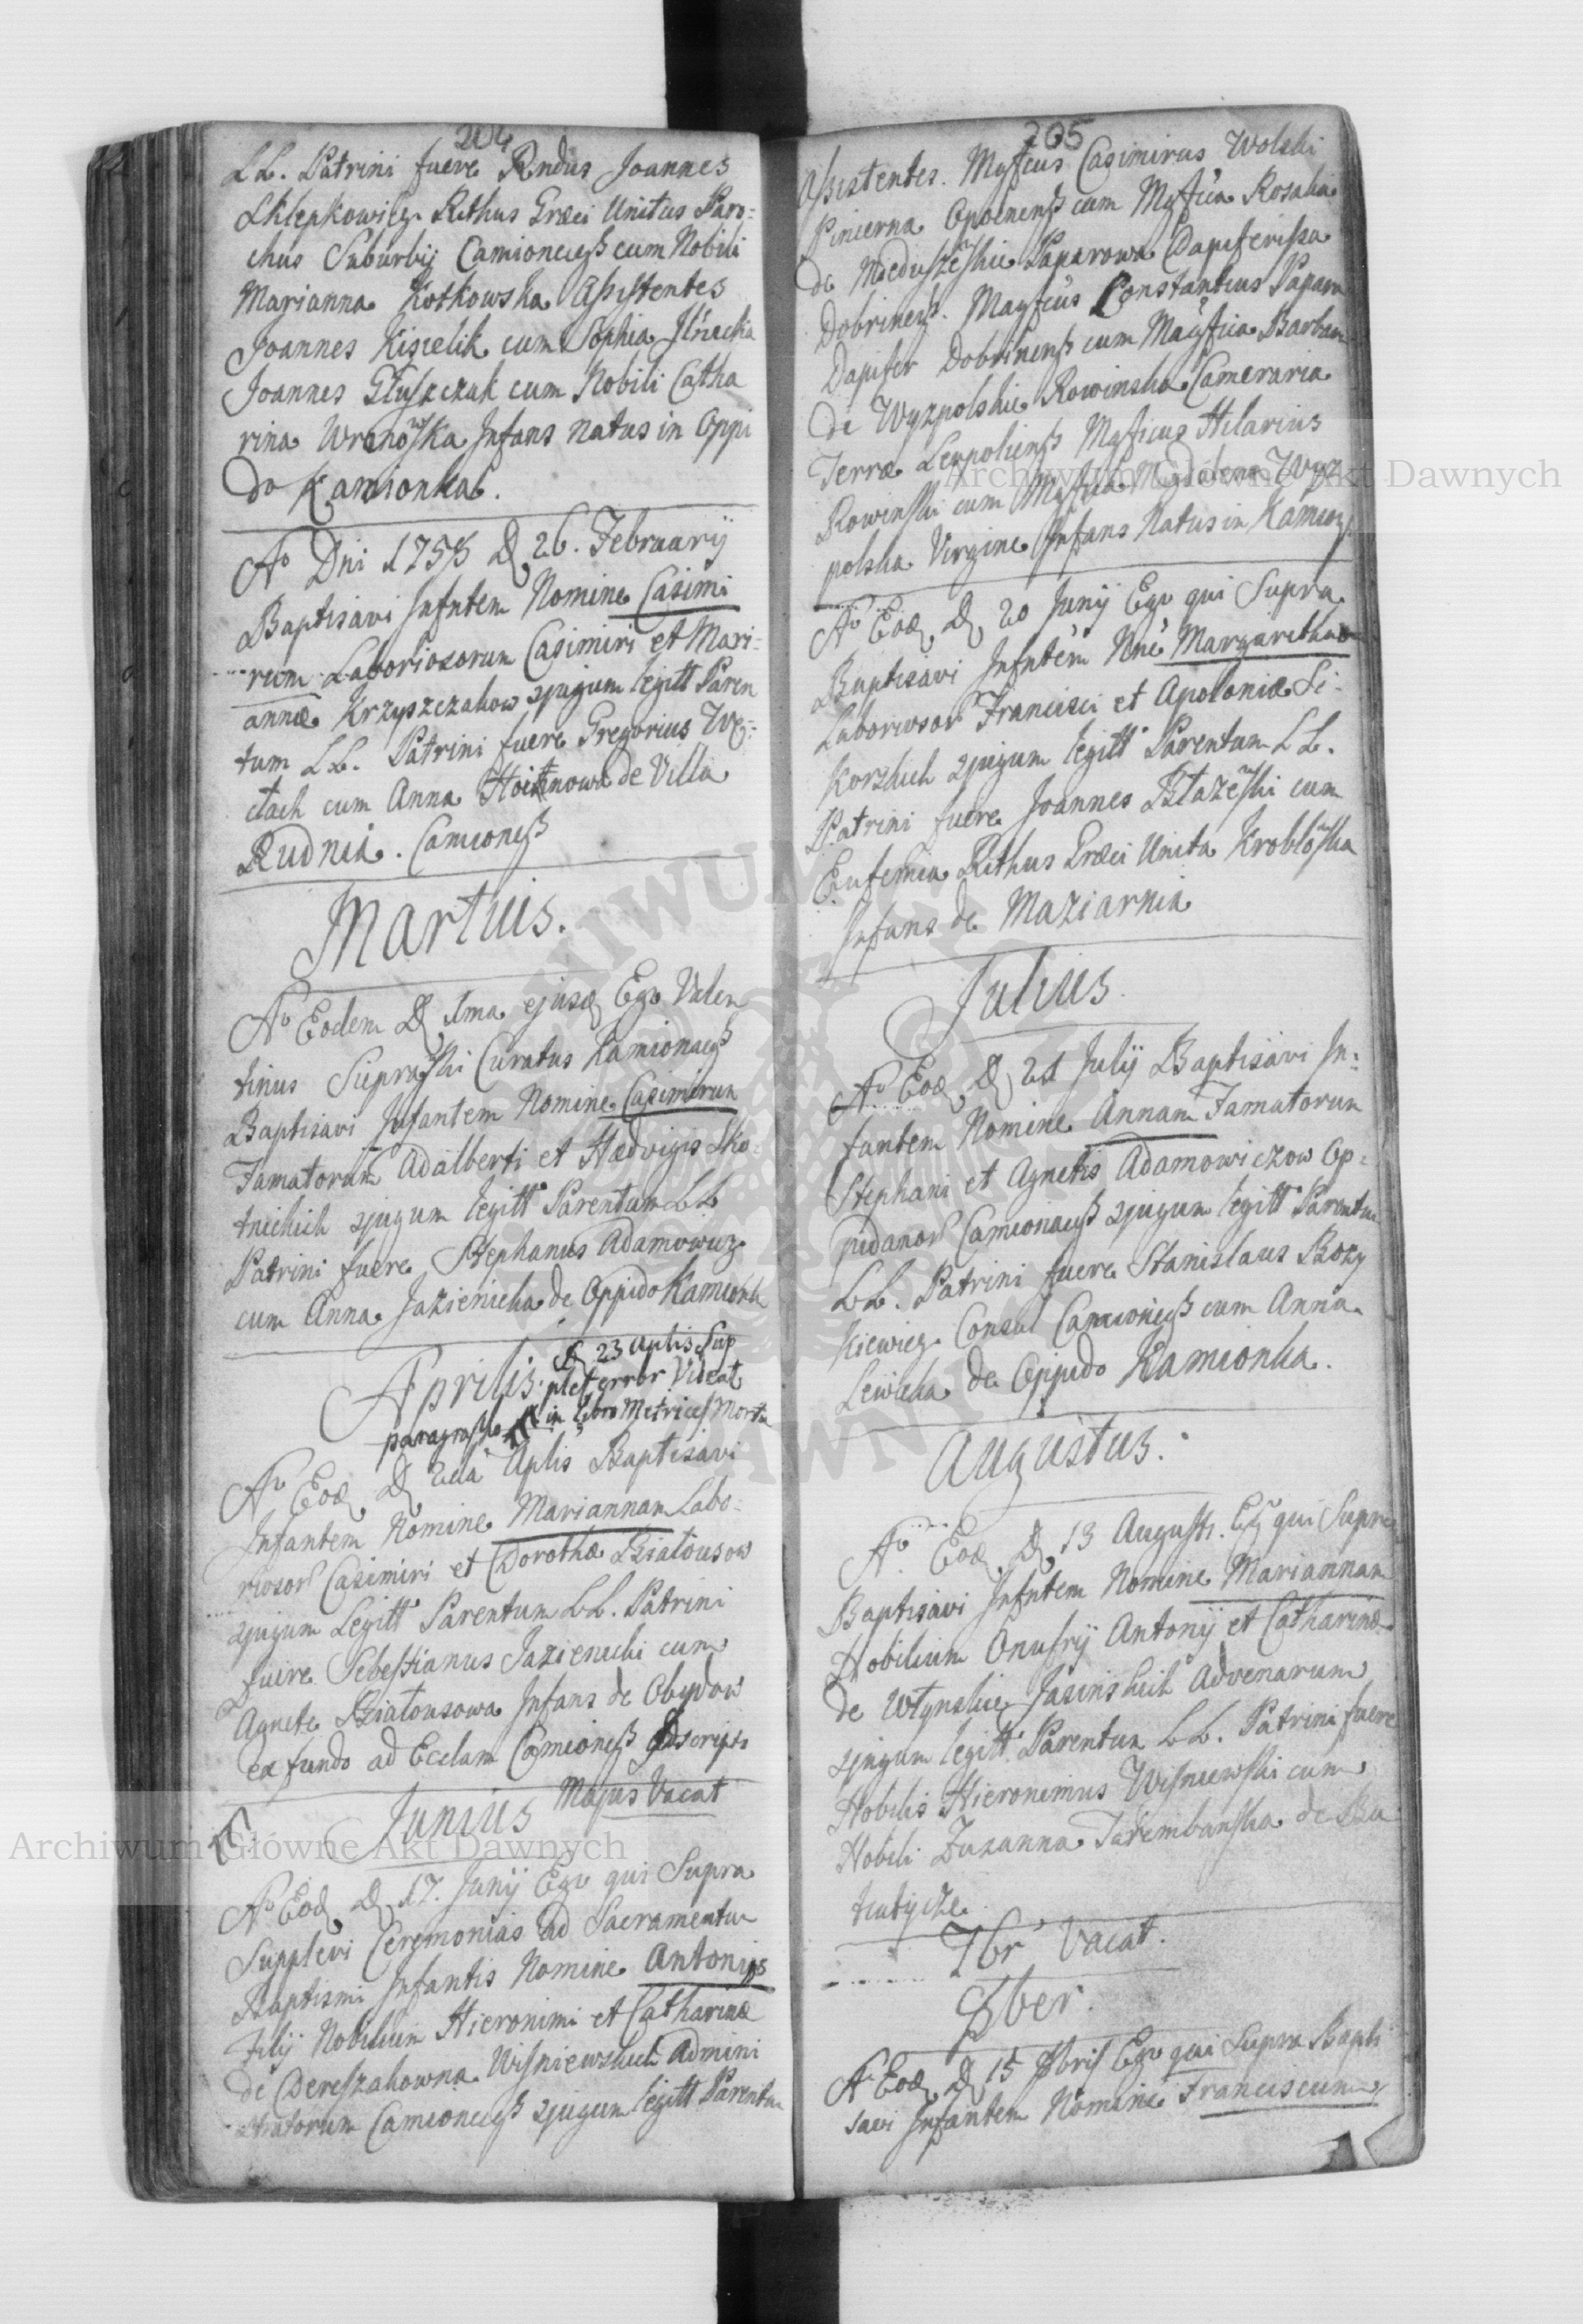 204
LL. Patrini fuere Rndus Joannes
Sklepkowicz Rithus Græci Unitus Paro-
chus Suburbij Camionceß cum Nobili
Marianna Kotkowska Aßistentes
Joannes Kisielik cum Sophia
Joannes Głuszczak cum Nobili Catha
rina Wronowska Infans natus in Oppi
do Kamionka.
Ao Dni 1758 D 26. Februarij
Baptisavi Infntem Nomine Casimi
rum Laboriosorum Casimiri et Mari-
annæ Krzyszczakow jugum legitt Paren
tum LL. Patrini fuere Gregorius
cum Anna de Villa
Rudnia. Camioneß
Martius.
Ao Eodem D 1ma ejusd Ego Valen
tinus Supraski Curatus Kamionaceß
Baptisavi Infantem Nomine Casimirum
Famatorum Adalberti et Hedvigis Sko-
tnickich jugum legitt Parentum LL
Patrini fuere Stephanus Adamowicz
cum Anna Jazienicka de Oppido Kamionka
Aprilis. D 23 Aplis Sup
plet error Videat
paragrapho in libro Metrices Mortu
Ao Eod D Aplis Baptisavi
Infantem Nomine Mariannam Labo-
riosor Casimiri et Dorothæ Białousow
jugum Legitt Parentum LL. Patrini
fuere Sebestianus Jazienicki cum
Agnete Białousowa Infans de Obydow
ex fundo ad Eccłam Camioneß adscripto
Majus Vacat
Junius
Ao Eod D 17. Junij Ego qui Supra
Supplevi Ceremonias ad Sacramentum
Baptismi Infantis Nomine Antonius
Filij Nobilium Hieronimi et Catharinæ
de Dereszakowna Wisniewskich Admini
stratorum Camionceß jugum legitt Parentum
205
Aßistentes. Mgficus Casimirus Wolski
Pincerna Opocenenß cum Mgfica Rosalia
de Paparowa Dapiferißa
Dobrinenß. Magficus Constantius Papara
Dapifer Dobrinenß cum Magfica Barbara
de Wyzpolskie Rowinska Cameraria
Terræ Leopolienß Mgficus Hilarius
Rowinski cum Mgfica Magdalena Wyz
polska Virgine Infans Natus in Kamion
Ao Eod D 20 Junij Ego qui Supra
Baptisavi Infntem Nne Margaritham
Laboriosor Francisci et Apoloniæ Si-
korskich jugum legitt Parentum LL.
Patrini fuere Joannes Błazewski cum
Eufemia Rithus Græci Unita Kroblowska
Infans de Maziarnia
Julius.
Ao Eod D 21 Julij Baptisavi In-
fantem Nomine Annam Famatorum
Stephani et Agnetis Adamowiczow Op-
pidanor Camionaceß jugum legitt Parentum
LL. Patrini fuere Stanislaus Rozy
kiewicz Consul Camioneß cum Anna
Lewicka de Oppido Kamionka.
Augustus.
Ao Eod D 13 Augusti. Ego qui Supra
Baptisavi Infntem Nomine Mariannam
Nobilium Onufrij Antonij et Catharinæ
de Wtynskie Jasinskich Advenarum
jugum legitt Parentum LL. Patrini fuere
Nobilis Hieronimus Wisniewski cum
Nobili Zuzanna Tarembanska de Ba
tiatycze.
7br Vacat.
8ber.
Ao Eod D 15 8bris Ego qui Supra Bapti
savi Infantem Nomine Franciscum
Archiwum Główne Akt Dawnych
Archiwum Główne Akt Dawnych